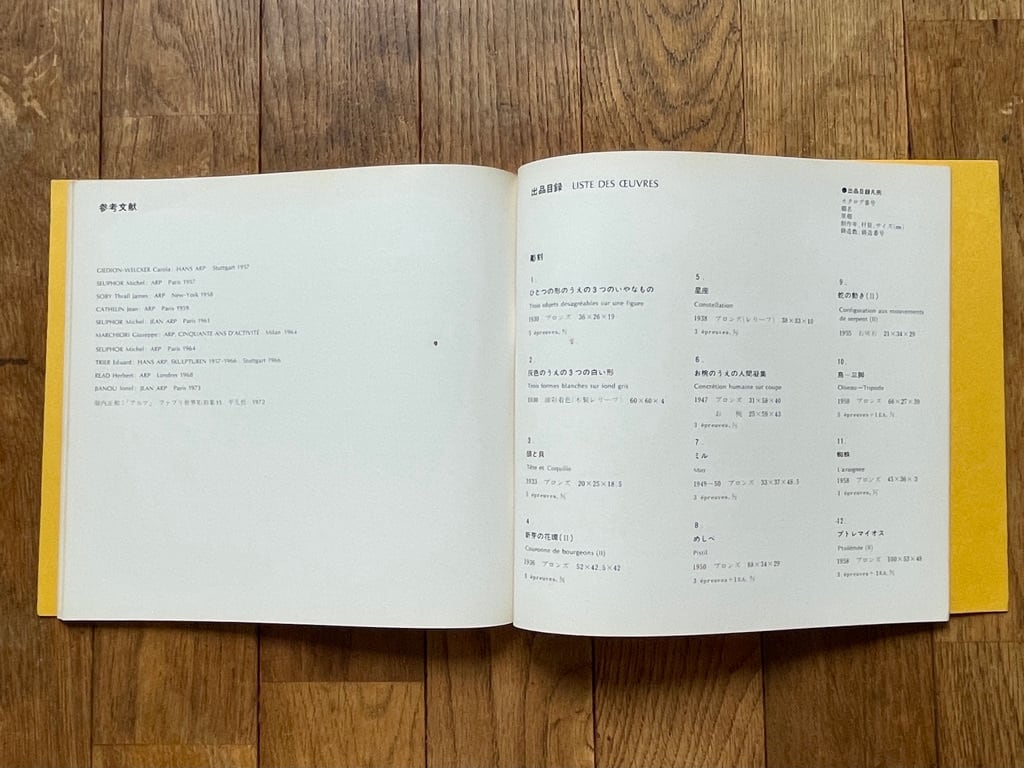 参考文献
GIEDION-WELCKER Carola: HANS ARP Stuttgart 1957
SEUPHOR Michel: ARP Paris 1957
SOBY Thrall James: ARP New-York 1958
CATHELIN Jean: ARP Paris 1959
SEUPHOR Michel: JEAN ARP Paris 1961
MARCHIORI Giuseppe: ARP, CINQUANTE ANS D'ACTIVITÉ Milan 1964
SEUPHOR Michel: ARP Paris 1964
TRIER Eduard: HANS ARP, SKULPTUREN 1957-1966 Stuttgart 1966
READ Herbert: ARP Londres 1968
JIANOU Ionel: JEAN ARP Paris 1973
「アルプ」 ファブリ世界彫刻集 平凡社 1972
出品目録 LISTE DES ŒUVRES
●出品目録凡例
カタログ番号
題名
原題
制作年, 材質, サイズ(cm)
鋳造数, 鋳造番号
彫刻
1.
ひとつの形のうえの3つのいやなもの
Trois objets désagréables sur une figure
1930 ブロンズ 36×26×19
5 épreuves,
2.
灰色のうえの3つの白い形
Trois formes blanches sur fond gris
1930 油彩着色(木製レリーフ) 60×60×4
3.
頭と貝
Tête et Coquille
1933 ブロンズ 20×25×18.5
5 épreuves,
4
新芽の花環(II)
Couronne de bourgeons (II)
1936 ブロンズ 52×42.5×42
5 épreuves,
5.
星座
Constellation
1938 ブロンズ(レリーフ) 38×33×10
3 épreuves,
6.
お椀のうえの人間凝集
Concrétion humaine sur coupe
1947 ブロンズ 31×58×40
お 椀 25×59×43
3 épreuves,
7.
ミル
Mirr
1949-50 ブロンズ 33×37×48.5
3 épreuves,
8.
めしべ
Pistil
1950 ブロンズ 88×34×29
3 épreuves+1EA,
9.
蛇の動き(II)
Configuration aux mouvements
de serpent (II)
1955 石 21×34×29
10.
鳥-三脚
Oiseau-Tripode
1950 ブロンズ 66×27×29
5 épreuves+1EA,
11.
蜘蛛
L'araignée
1958 ブロンズ 45×36×3
12.
プトレマイオス
Ptolémée (II)
1958 ブロンズ 100×53×48
3 épreuves+1EA,